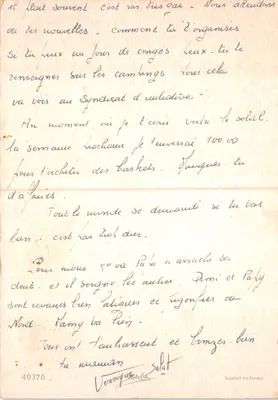 il pleut souvent c'est pas très gai. Nous attendons
de tes nouvelles. comment tu t'organises
Si tu peux un jour de congés peux-tu te
renseigner sur les campings voire cela
va vers au Syndicat d'initiative
Au moment où je t'écris voila le soleil.
la semaine prochaine je t'enverrai 100.00
pour t'acheter des baskets. Manques-tu
d'affaires.
Tout le monde se demande si tu vas
bien. c'est pas trop dur.
Pour nous ça va Papa a arraché ses
dent. et il soigne les autres. Mémé et Papy
sont revenus bien fatigués et du
Nord. Fanny va bien.
Tous on t'embrassent et bien
ta maman
Véronique Salut
40370
Imprimé en France